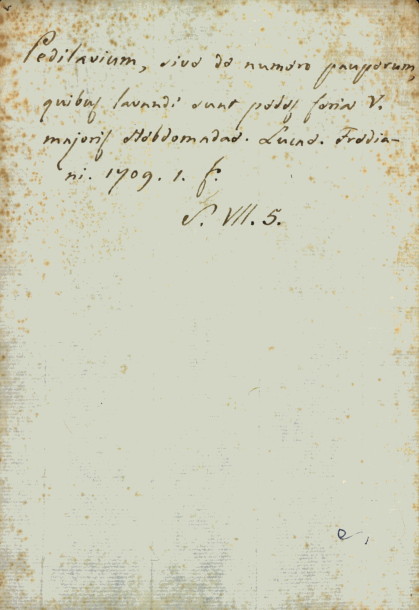 Pedilavium, sive de numero pauperum,
quibus lavandi sunt pedes feria V.
majoris Hebdomadae. Lucae. Fredia-
ni. 1709. 1. f.
S. VII. 5.